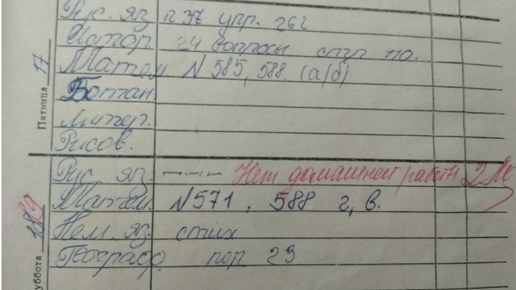 Рус. яз п 37 упр. 262
Истор 24 вопросы стр 110.
Матем N 585, 588 (а/б)
Ботан.
Литер.
Рисов.
Пятница 17
Рус. яз. —··—··— Нет домашней работы 2
Матем. N571, 588 г, в.
Нем. яз. стих
Географ. пар. 29
суббота 18